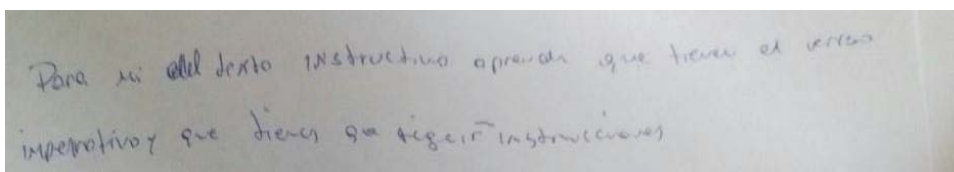 Para mi del texto instructivo aprendi que tienen el verso
imperativo y que tienes que seguir instrucciones